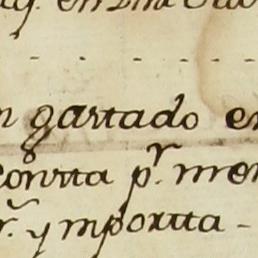 n gastado en
consta p.r mem
r. y importa -